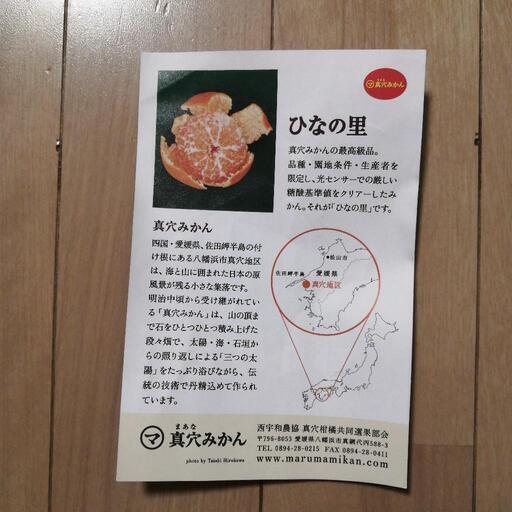 まあな
マ 真穴みかん
ひなの里
真穴みかんの最高級品。
品種・園地条件・生産者を
限定し、光センサーでの厳しい
糖酸基準値をクリアーしたみ
かん。それが「ひなの里」です。
真穴みかん
四国・愛媛県、佐田岬半島の付
け根にある八幡浜市真穴地区
は、海と山に囲まれた日本の原
風景が残る小さな集落です。
明治中頃から受け継がれている
「真穴みかん」は、山の頂ま
で石をひとつひとつ積み上げた
段々畑で、太陽・海・石垣か
らの照り返しによる「三つの太
陽」をたっぷり浴びながら、伝
統の技術で丹精込めて作られ
ています。
松山市
佐田岬半島
愛媛県
真穴地区
まあな
マ 真穴みかん
photo by Tazuki Hirokawa
西宇和農協 真穴柑橘共同選果部会
〒796-8053 愛媛県八幡浜市真網代丙588-3
TEL 0894-28-0215 FAX 0894-28-0411
www.marumamikan.com